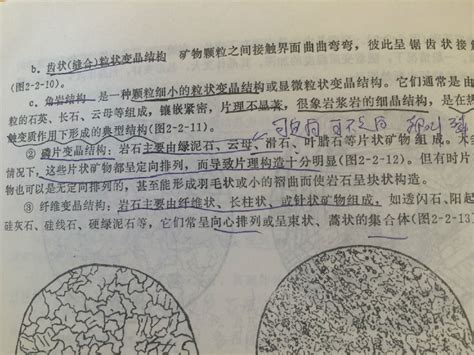 b．齿状(缝合)粒状变晶结构　矿物颗粒之间接触界面曲曲弯弯，彼此呈锯齿状接
(图2-2-10)。
c．角岩结构　是一种颗粒细小的粒状变晶结构或显微粒状变晶结构。它们通常是由
粒的石英、长石、云母等组成，镶嵌紧密，片理不显著，很象岩浆岩的细晶结构，是在热
触变质作用下形成的典型结构(图2-2-11)。
②鳞片变晶结构：岩石主要由绿泥石、云母、滑石、叶腊石等片状矿物组成。
情况下，这些片状矿物都呈定向排列，而导致片理构造十分明显(图2-2-12)。但有时片
物也可以是无定向排列的，甚至能形成羽毛状或小的褶曲而使岩石呈块状构造。
③纤维变晶结构：岩石主要由纤维状、长柱状、或针状矿物组成。如透闪石、阳起
硅灰石、硅线石、硬绿泥石等，它们常呈向心排列或呈束状、蒿状的集合体(图2-2-13)